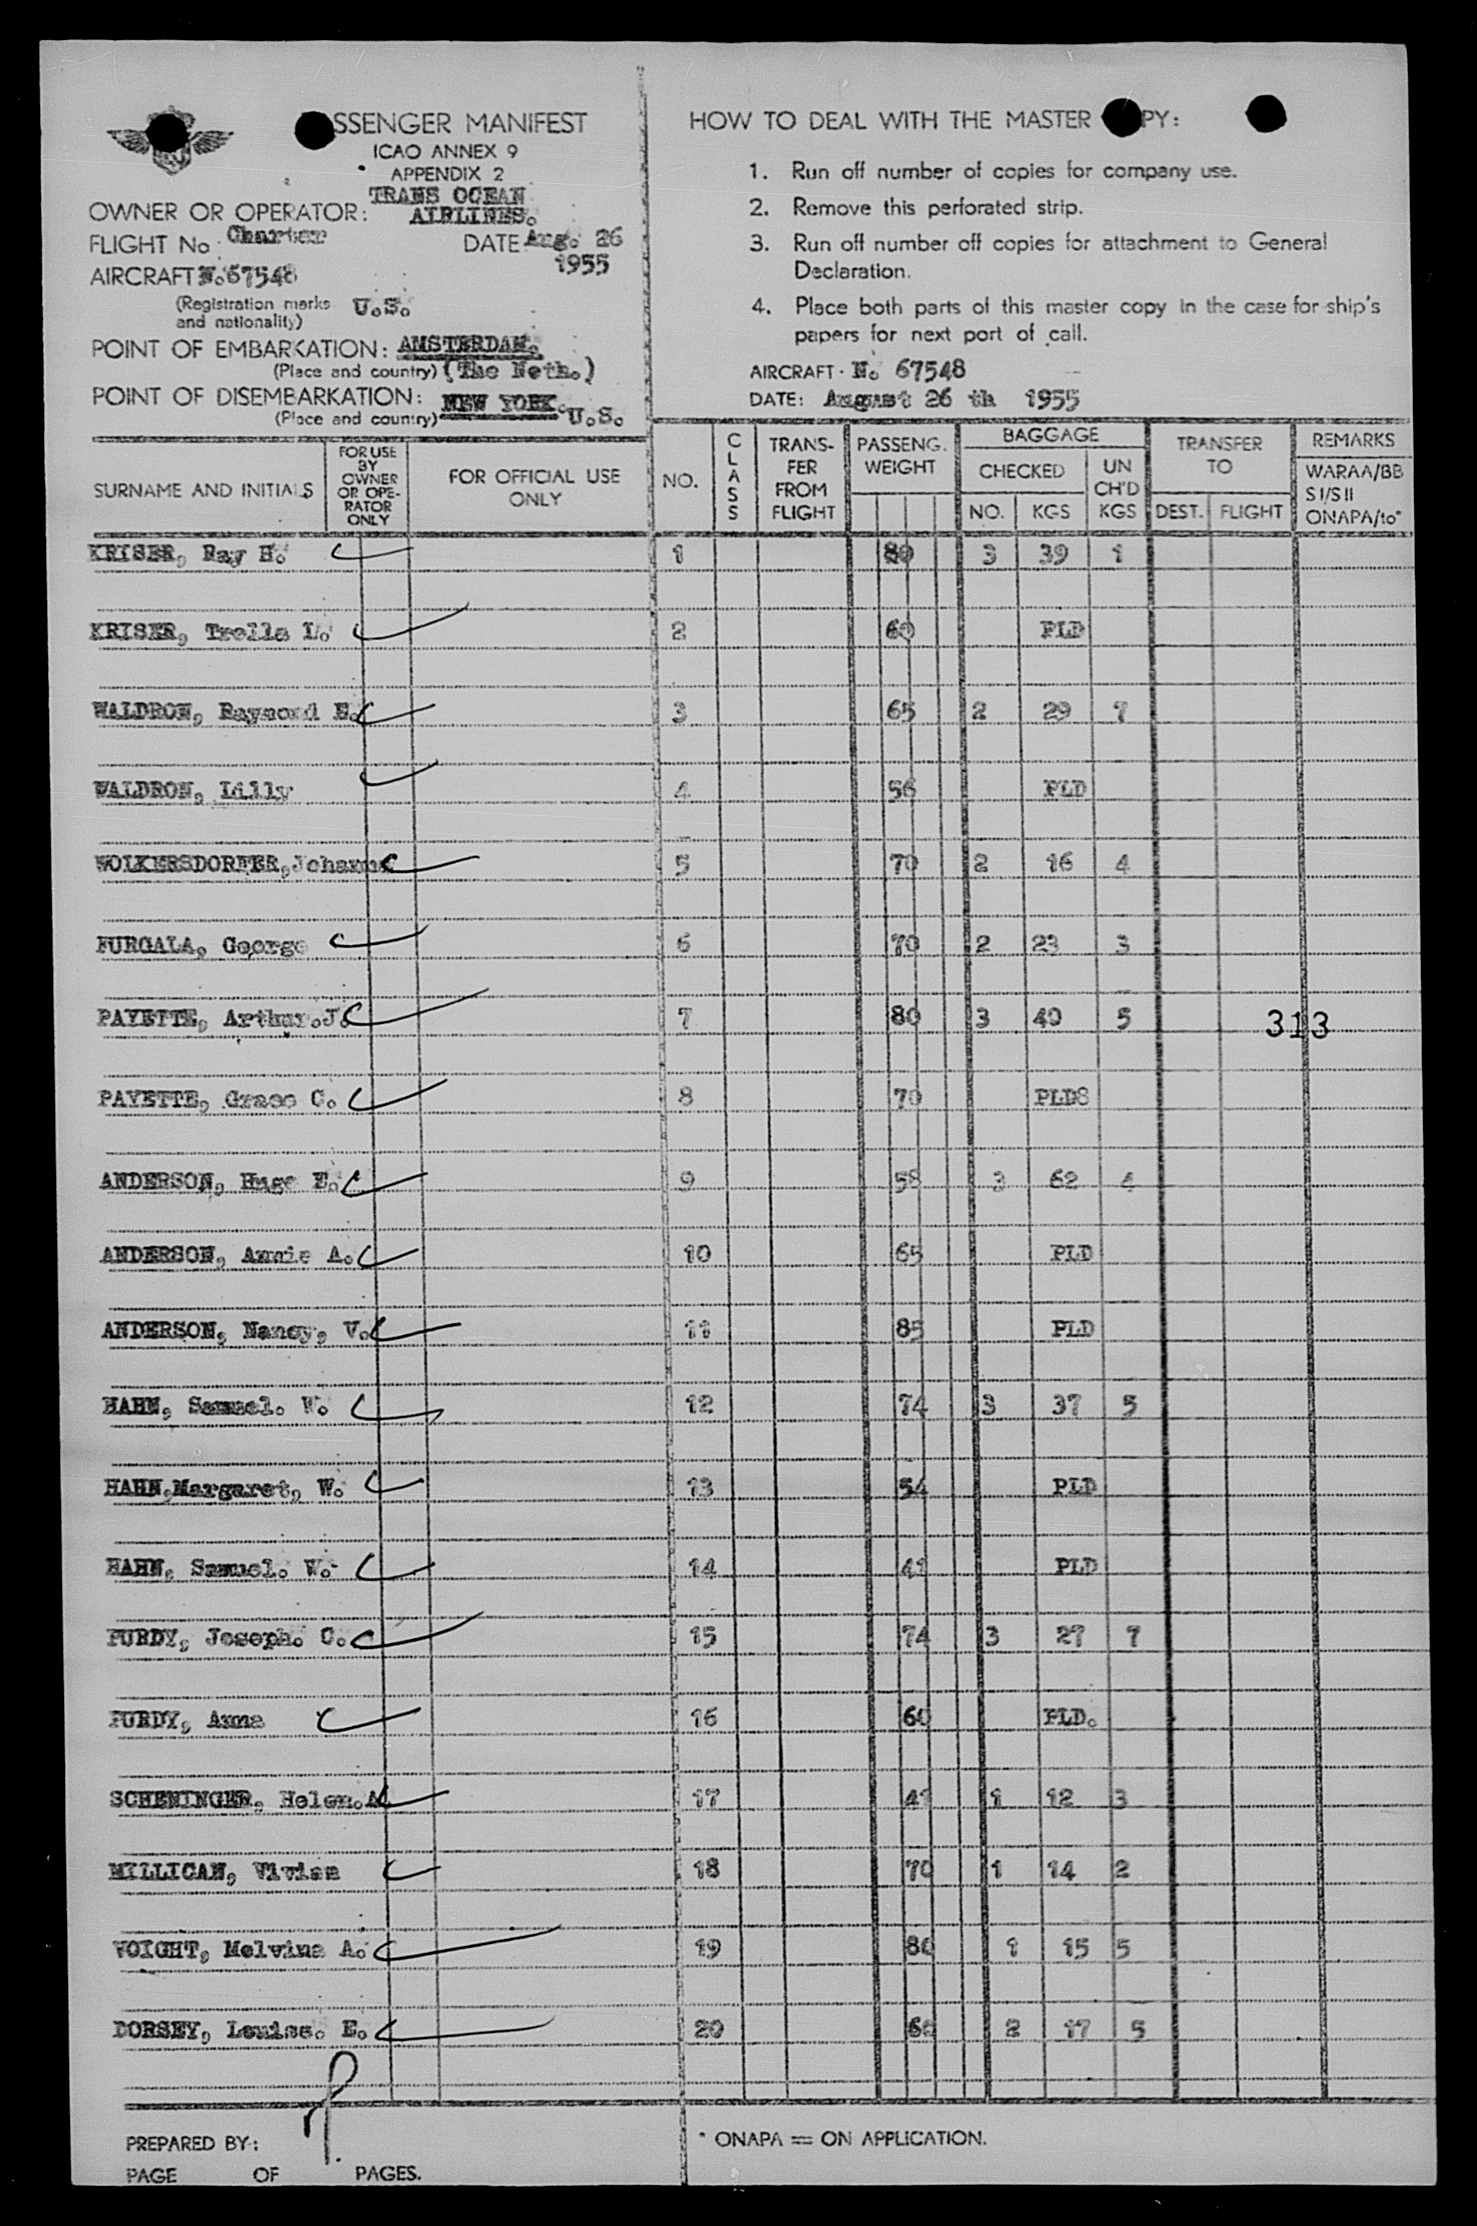 SSENGER MANIFEST
ICAO ANNEX 9
APPENDIX 2
TRANS OCEAN
OWNER OR OPERATOR: AIRLINES.
FLIGHT No: Charter DATE Aug. 26
1955
AIRCRAFT N.67548
(Registration marks U.S.
and nationality)
POINT OF EMBARKATION: AMSTERDAM.
(Place and country) (The Neth.)
POINT OF DISEMBARKATION: NEW YORK.
(Place and country) U.S.
HOW TO DEAL WITH THE MASTER PY:
1. Run off number of copies for company use.
2. Remove this perforated strip.
3. Run off number off copies for attachment to General
Declaration.
4. Place both parts of this master copy in the case for ship's
papers for next port of call.
AIRCRAFT. N. 67548
DATE: August 26 th 1955
SURNAME AND INITIALS
FOR USE
BY
OWNER
OR OPE-
RATOR
ONLY
FOR OFFICIAL USE
ONLY
NO.
CLASS
TRANS-
FER
FROM
FLIGHT
PASSENG.
WEIGHT
BAGGAGE
CHECKED
NO. KGS
UN
CH'D
KGS
TRANSFER
TO
DEST. FLIGHT
REMARKS
WARAA/BB
SI/SII
ONAPA/to*
KRISER, Ray H. 1 80 3 39 1
KRISER, Trella L. 2 60 PLD
WALDRON, Raymond E. 3 65 2 29 7
WALDRON, Lilly 4 56 PLD
WOLKERSDORFER, 5 70 2 16 4
FURGALA, George 6 70 2 23 3
PAYETTE, Arthur.J. 7 80 3 40 5 313
PAYETTE, Grace C. 8 70 PLDS
ANDERSON, Hugo E. 9 58 3 62 4
ANDERSON, Annie A. 10 65 PLD
ANDERSON, Nancy, V. 11 85 PLD
HAHN, Samuel. W. 12 74 3 37 5
HAHN,Margaret, W. 13 54 PLD
HAHN, Samuel. W. 14 41 PLD
PURDY, Joseph. C. 15 74 3 27 7
PURDY, Anna 16 60 PLD.
SCHENINGER, Helen.A 17 41 1 12 3
MILLICAN, Vivian 18 70 1 14 2
VOIGHT, Melvina A. 19 80 1 15 5
DORSEY, Louise. E. 20 60 2 17 5
PREPARED BY:
PAGE OF PAGES.
* ONAPA = ON APPLICATION.